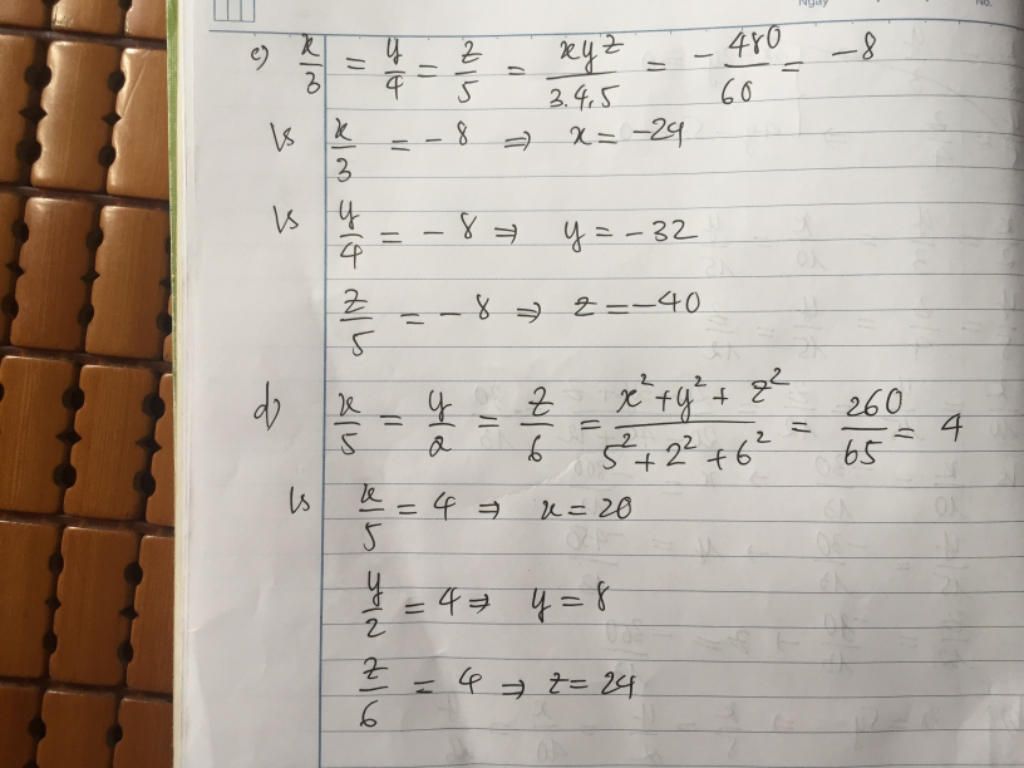 Ngày
No.
c) x/3 = y/4 = z/5 = xyz/3.4.5 = -480/60 = -8
x/3 = -8 => x = -24
y/4 = -8 => y = -32
z/5 = -8 => z = -40
d) x/5 = y/2 = z/6 = x²+y²+z²/5²+2²+6² = 260/65 = 4
x/5 = 4 => x = 20
y/2 = 4 => y = 8
z/6 = 4 => z = 24